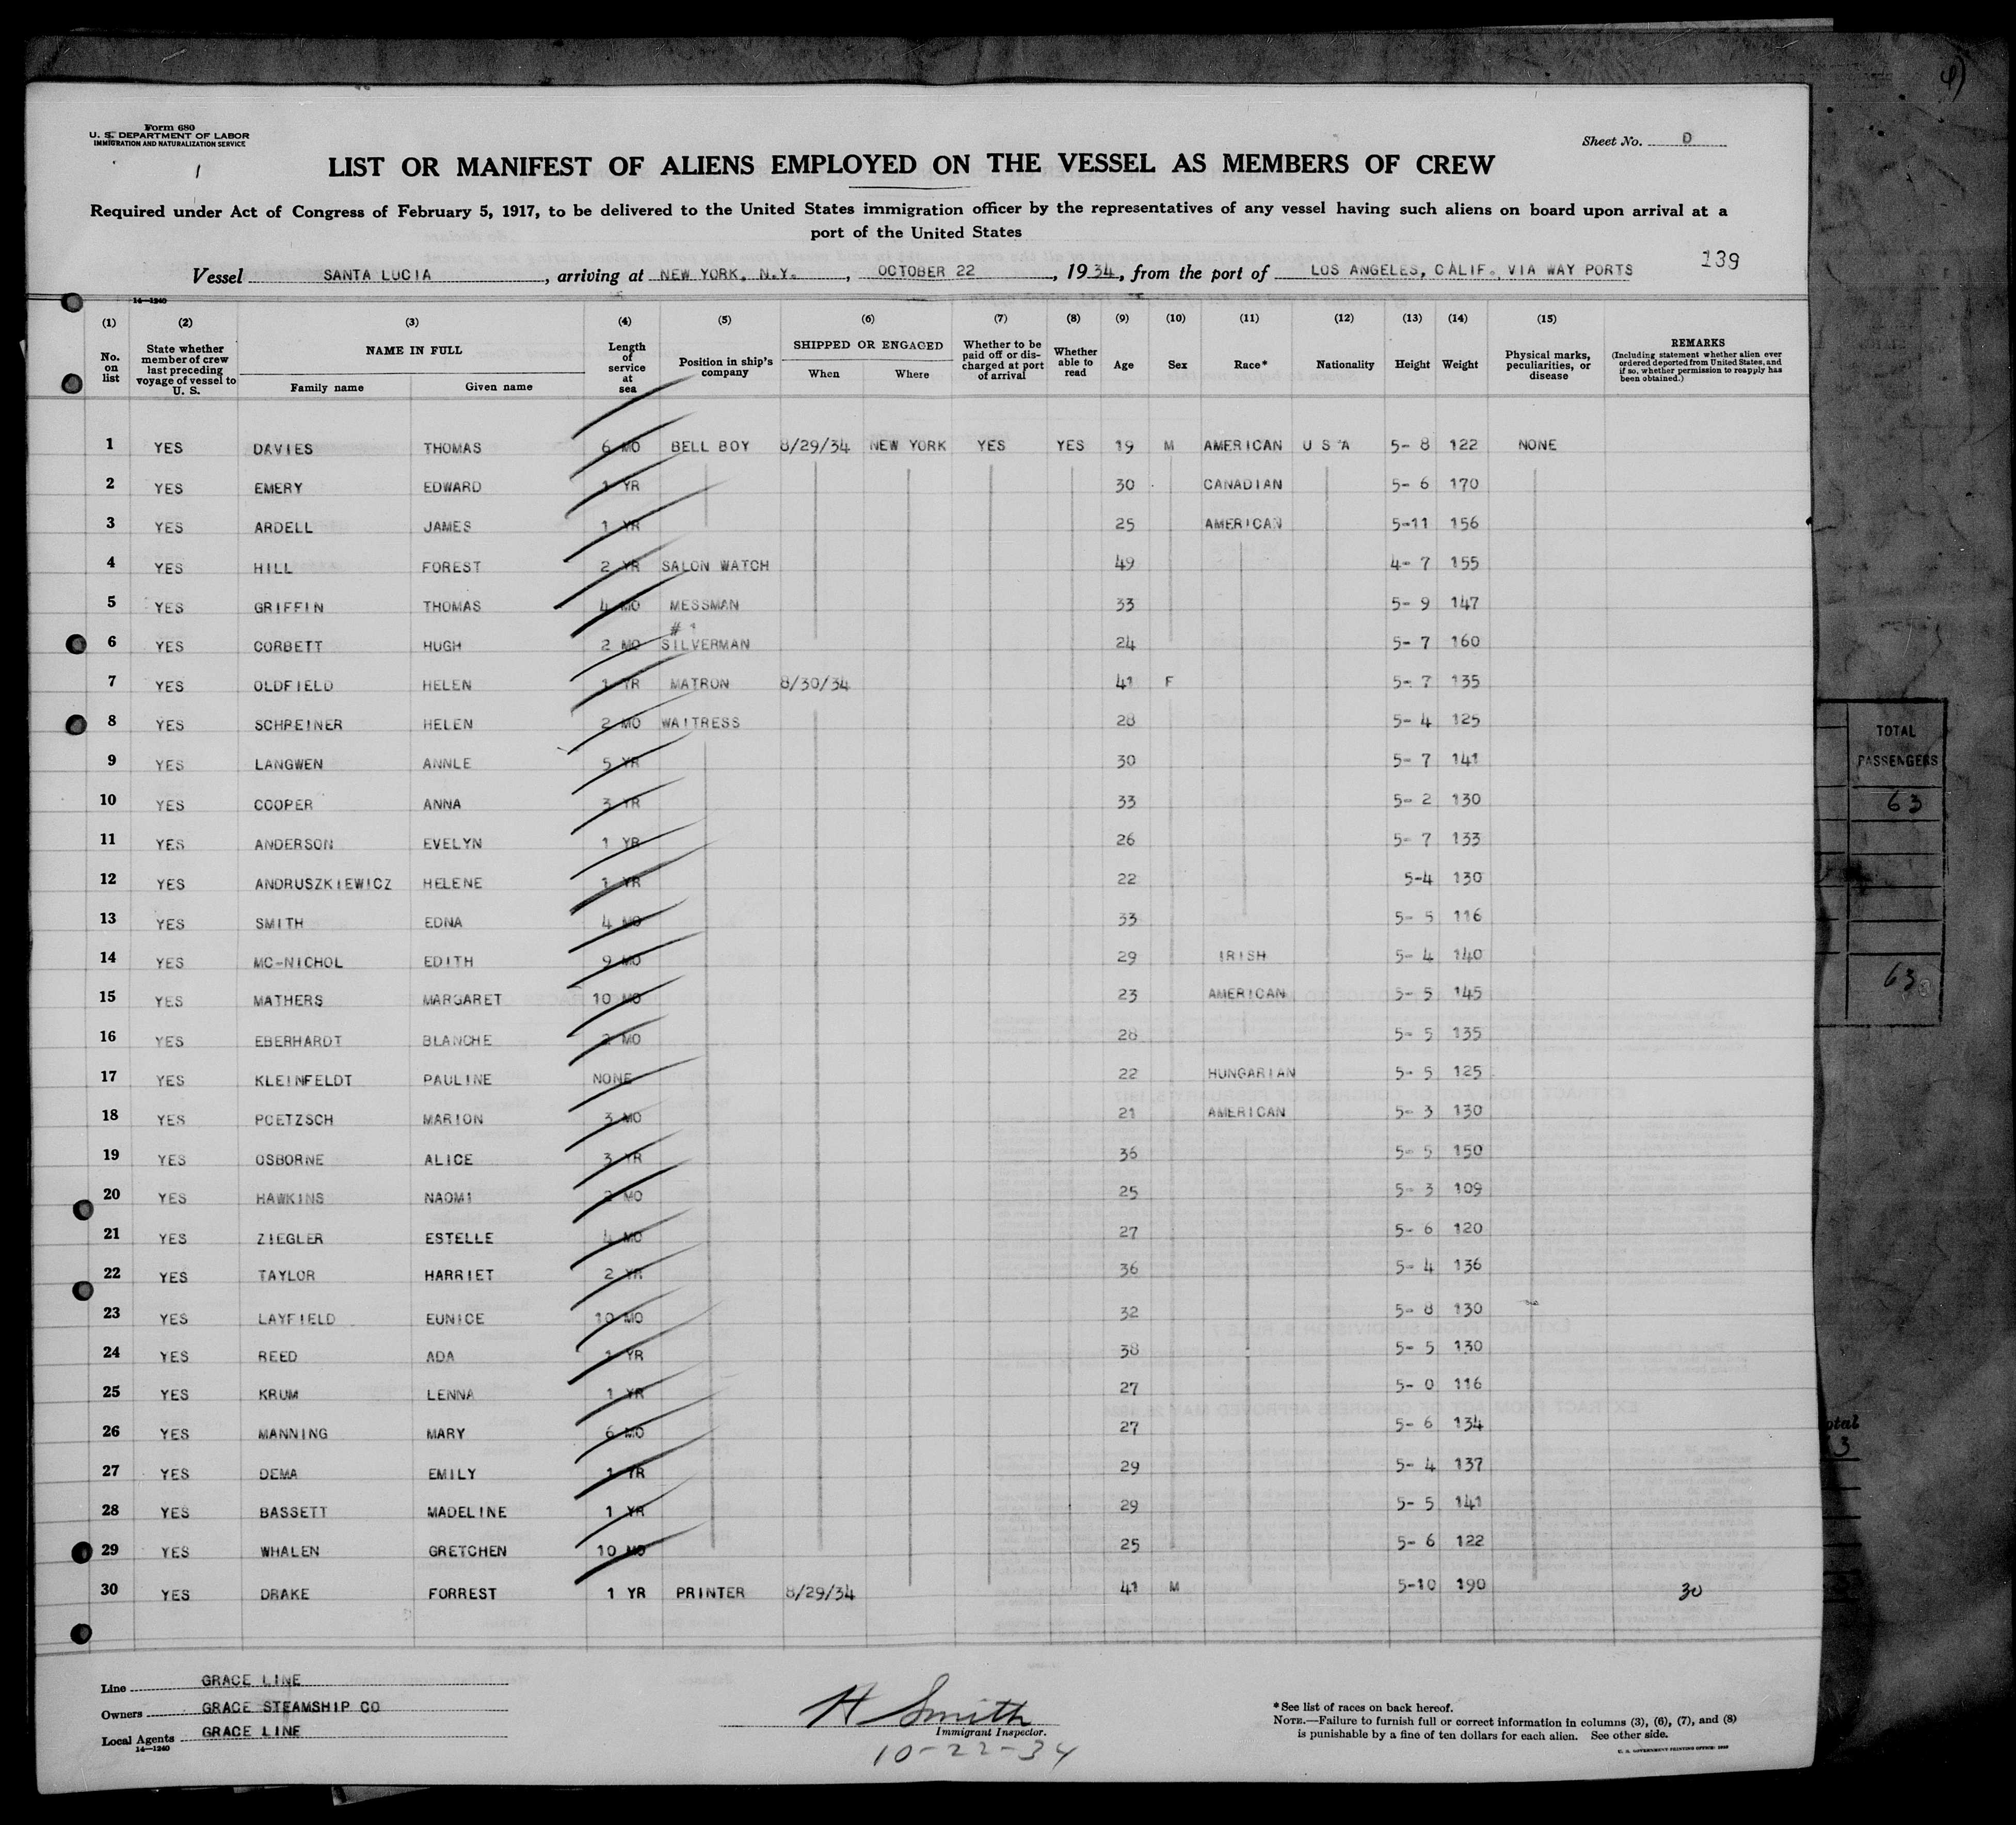 Form 680
U. S. DEPARTMENT OF LABOR
IMMIGRATION AND NATURALIZATION SERVICE
Sheet No. D
LIST OR MANIFEST OF ALIENS EMPLOYED ON THE VESSEL AS MEMBERS OF CREW
Required under Act of Congress of February 5, 1917, to be delivered to the United States immigration officer by the representatives of any vessel having such aliens on board upon arrival at a
port of the United States
Vessel SANTA LUCIA, arriving at NEW YORK. N.Y., OCTOBER 22, 1934, from the port of LOS ANGELES, CALIF. VIA WAY PORTS 139
14—1240
(1) (2) (3) (4) (5) (6) (7) (8) (9) (10) (11) (12) (13) (14) (15)
No. on list
State whether member of crew last preceding voyage of vessel to U. S.
NAME IN FULL
Family name Given name
Length of service at sea
Position in ship's company
SHIPPED OR ENGAGED
When Where
Whether to be paid off or discharged at port of arrival
Whether able to read
Age Sex Race* Nationality Height Weight
Physical marks, peculiarities, or disease
REMARKS
(Including statement whether alien ever ordered deported from United States, and if so, whether permission to reapply has been obtained.)
1 YES DAVIES THOMAS 6 MO BELL BOY 8/29/34 NEW YORK YES YES 19 M AMERICAN U S A 5- 8 122 NONE
2 YES EMERY EDWARD 1 YR 30 CANADIAN 5- 6 170
3 YES ARDELL JAMES 1 YR 25 AMERICAN 5-11 156
4 YES HILL FOREST 2 YR SALON WATCH 49 4- 7 155
5 YES GRIFFIN THOMAS 4 MO MESSMAN 33 5- 9 147
6 YES CORBETT HUGH 2 MO SILVERMAN 24 5- 7 160
7 YES OLDFIELD HELEN 1 YR MATRON 8/30/34 41 F 5- 7 135
8 YES SCHREINER HELEN 2 MO WAITRESS 28 5- 4 125
9 YES LANGWEN ANNLE 5 YR 30 5- 7 141
10 YES COOPER ANNA 3 YR 33 5- 2 130
11 YES ANDERSON EVELYN 1 YR 26 5- 7 133
12 YES ANDRUSZKIEWICZ HELENE 1 YR 22 5-4 130
13 YES SMITH EDNA 4 MO 33 5- 5 116
14 YES MC-NICHOL EDITH 9 MO 29 IRISH 5- 4 140
15 YES MATHERS MARGARET 10 MO 23 AMERICAN 5- 5 145
16 YES EBERHARDT BLANCHE 2 MO 28 5- 5 135
17 YES KLEINFELDT PAULINE NONE 22 HUNGARIAN 5- 5 125
18 YES POETZSCH MARION 3 MO 21 AMERICAN 5- 3 130
19 YES OSBORNE ALICE 3 YR 36 5- 5 150
20 YES HAWKINS NAOMI 2 MO 25 5- 3 109
21 YES ZIEGLER ESTELLE 4 MO 27 5- 6 120
22 YES TAYLOR HARRIET 2 YR 36 5- 4 136
23 YES LAYFIELD EUNICE 10 MO 32 5- 8 130
24 YES REED ADA 1 YR 38 5- 5 130
25 YES KRUM LENNA 1 YR 27 5- 0 116
26 YES MANNING MARY 6 MO 27 5- 6 134
27 YES DEMA EMILY 1 YR 29 5- 4 137
28 YES BASSETT MADELINE 1 YR 29 5- 5 141
29 YES WHALEN GRETCHEN 10 MO 25 5- 6 122
30 YES DRAKE FORREST 1 YR PRINTER 8/29/34 41 M 5-10 190 30
Line GRACE LINE
Owners GRACE STEAMSHIP CO
Local Agents GRACE LINE
14—1240
H Smith
Immigrant Inspector.
10-22-34
*See list of races on back hereof.
NOTE.—Failure to furnish full or correct information in columns (3), (6), (7), and (8)
is punishable by a fine of ten dollars for each alien. See other side.
TOTAL
PASSENGERS
63
63